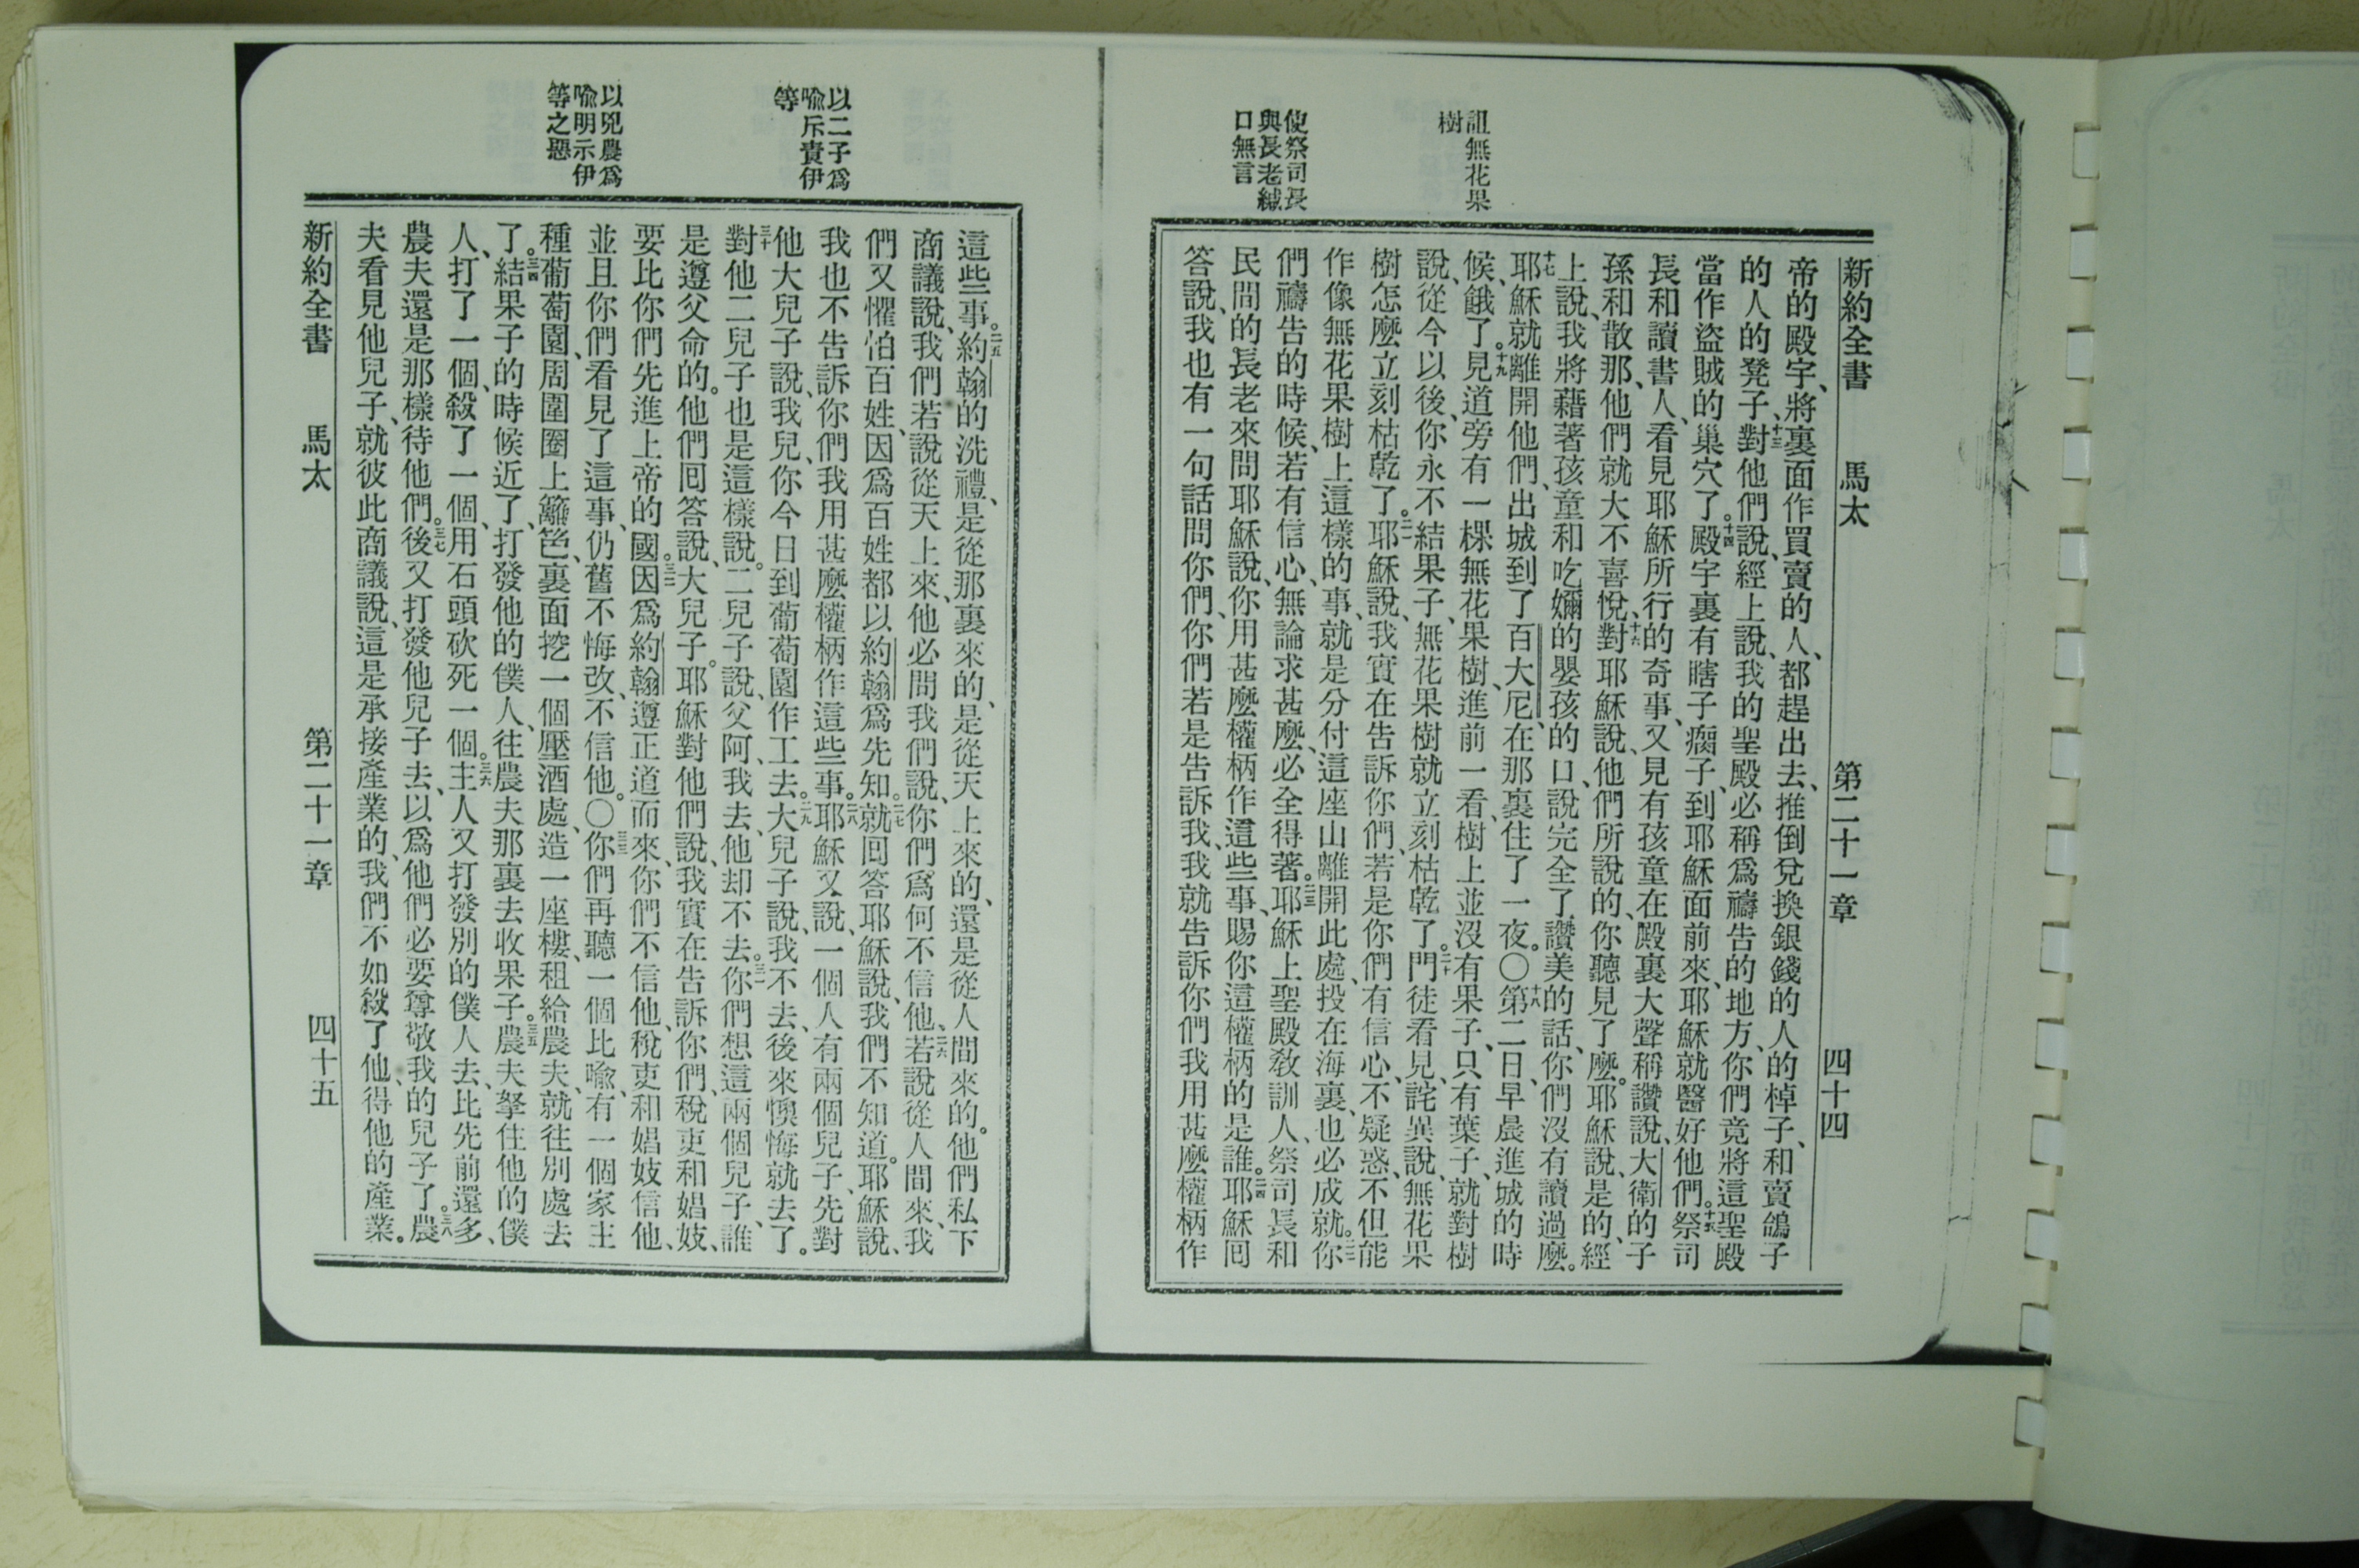 詛無花果
樹
使祭司長
與長老緘
口無言
新約全書 馬太 第二十一章 四十四
帝的殿宇、將裏面作買賣的人、都趕出去、推倒兌換銀錢的人的棹子、和賣鴿子
的人的凳子、十三對他們說、經上說、我的聖殿必稱爲禱告的地方、你們竟將這聖殿
當作盜賊的巢穴了。十四殿宇裏有瞎子瘸子、到耶穌面前來、耶穌就醫好他們。十五祭司
長和讀書人、看見耶穌所行的奇事、又見有孩童在殿裏大聲稱讚說、大衛的子
孫和散那、他們就大不喜悅、十六對耶穌說、他們所說的、你聽見了麽。耶穌說、是的、經
上說、我將藉著孩童和吃嬭的嬰孩的口、說完全了讚美的話、你們沒有讀過麽。
十七耶穌就離開他們、出城到了百大尼、在那裏住了一夜。〇十八第二日、早晨進城的時
候、餓了。十九見道旁有一棵無花果樹、進前一看、樹上並沒有果子、只有葉子、就對樹
說、從今以後、你永不結果子、無花果樹就立刻枯乾了。二十門徒看見、詫異說、無花果
樹怎麽立刻枯乾了。二一耶穌說、我實在告訴你們、若是你們有信心、不疑惑、不但能
作像無花果樹上這樣的事、就是分付這座山離開此處、投在海裏、也必成就。二二你
們禱告的時候、若有信心、無論求甚麽、必全得著。二三耶穌上聖殿教訓人、祭司長和
民間的長老來問耶穌說、你用甚麽權柄作這些事、賜你這權柄的是誰。二四耶穌囘
答說、我也有一句話問你們、你們若是告訴我、我就告訴你們我用甚麽權柄作
以二子爲
喩斥責伊
等
以兇農爲
喩明示伊
等之惡
這些事。二五約翰的洗禮、是從那裏來的、是從天上來的、還是從人間來的。他們私下
商議說、我們若說從天上來、他必問我們說、你們爲何不信他、二六若說從人間來、我
們又懼怕百姓、因爲百姓都以約翰爲先知。二七就囘答耶穌說、我們不知道。耶穌說、
我也不告訴你們我用甚麽權柄作這些事。二八耶穌又說、一個人有兩個兒子、先對
他大兒子說、我兒、你今日到葡萄園作工去。二九大兒子說、我不去、後來懊悔就去了。
三十對他二兒子也是這樣說。二兒子說、父阿、我去、他却不去。三一你們想這兩個兒子、誰
是遵父命的。他們囘答說、大兒子。耶穌對他們說、我實在告訴你們、稅吏和娼妓、
要比你們先進上帝的國。三二因爲約翰遵正道而來、你們不信他、稅吏和娼妓信他、
並且你們看見了這事、仍舊不悔改、不信他。〇三三你們再聽一個比喩、有一個家主
種葡萄園、周圍圈上籬笆、裏面挖一個壓酒處、造一座樓、租給農夫、就往別處去
了。三四結果子的時候近了、打發他的僕人、往農夫那裏去收果子。三五農夫拏住他的僕
人、打了一個、殺了一個、用石頭砍死一個。三六主人又打發別的僕人去、比先前還多、
農夫還是那樣待他們。三七後又打發他兒子去、以爲他們必要尊敬我的兒子了。三八農
夫看見他兒子、就彼此商議說、這是承接產業的、我們不如殺了他、得他的產業。
新約全書 馬太 第二十一章 四十五